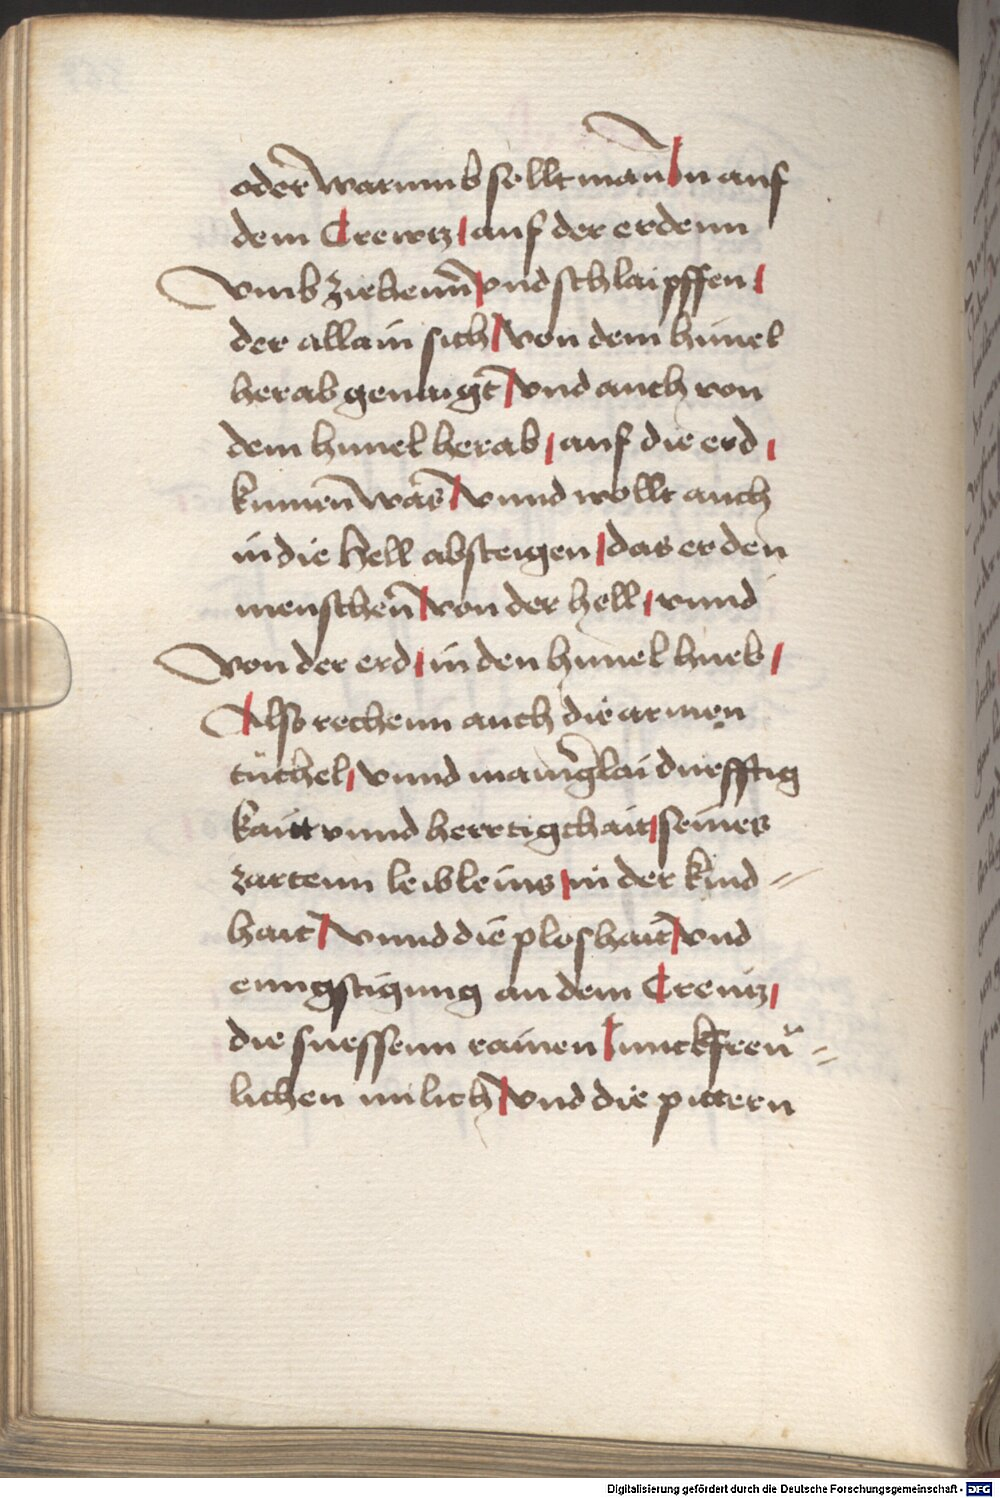 oder warumb sollt man In auf
dem Crewtz / auf der erdenn
vmb ziehenn / vnd schlaipffen /
der allain sich / von dem himel
herab genaigt / vnd auch von
dem himel herab / auf die erd /
kumen was / vnnd wollt auch
in die hell absteigen / das er den
menschen / von der hell / vnnd
von der erd / in den himel hueb /
Also rechenn auch die armen
tüchel / vnnd mangerlai duefftig
kaitt vnnd herttigchait / seines
zartenn leibleins / in der kind=
hait / vnnd die ploshait / vnd
enngstigung an dem Creutz /
die suessenn rainen Junckfreü=
lichen milich / vnd die pittern
Digitalisierung gefördert durch die Deutsche Forschungsgemeinschaft - DFG